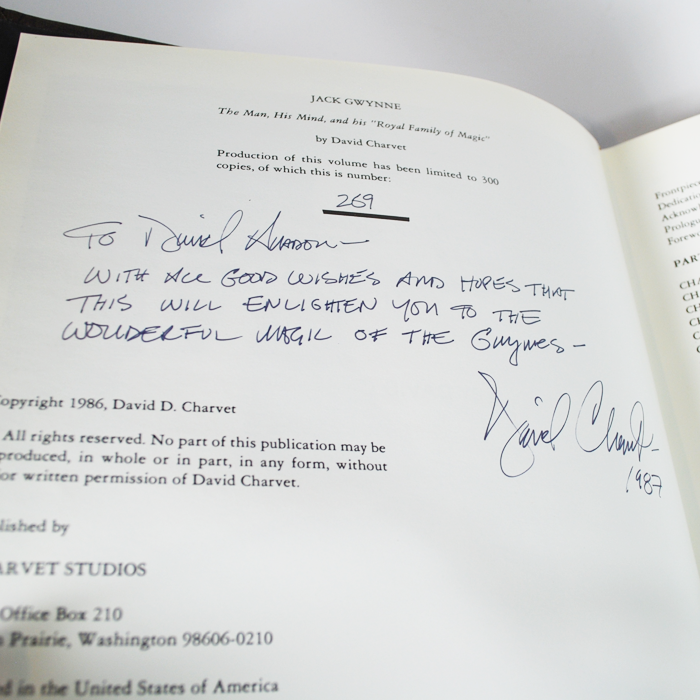 JACK GWYNNE
The Man, His Mind, and his "Royal Family of Magic"
by David Charvet
Production of this volume has been limited to 300
copies, of which this is number:
269
TO David
WITH ALL GOOD WISHES AND HOPES THAT
THIS WILL ENLIGHTEN YOU TO THE
WONDERFUL MAGIC OF THE Gwynnes –
David Charvet
1987
opyright 1986, David D. Charvet
All rights reserved. No part of this publication may be
produced, in whole or in part, in any form, without
or written permission of David Charvet.
lished by
ARVET STUDIOS
Office Box 210
Prairie, Washington 98606-0210
d in the United States of America
Frontpiec
Dedicatio
Acknow
Prologu
Forewo
PAR
CHA
CH
CH
C
C